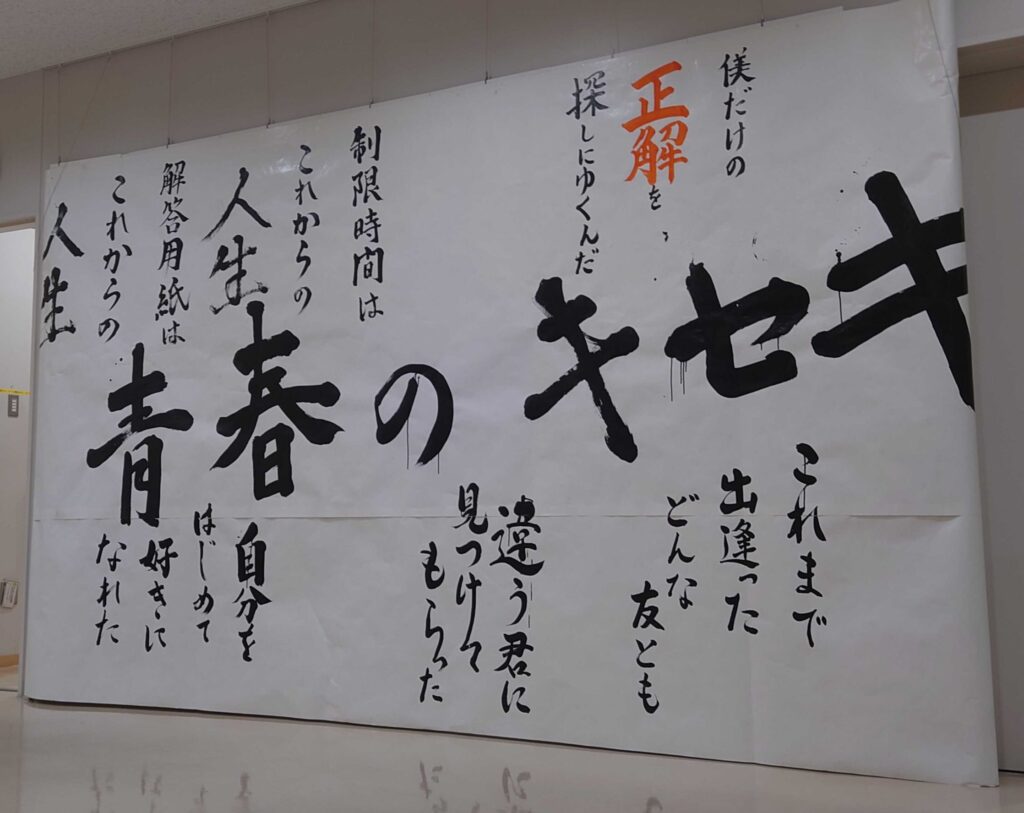 僕だけの
正解を
探しにゆくんだ
キセキ
の
青春
制限時間は
これからの
人生
解答用紙は
これからの
人生
これまで
出逢った
どんな
友とも
違う君に
見つけて
もらった
自分を
はじめて
好きに
なれた